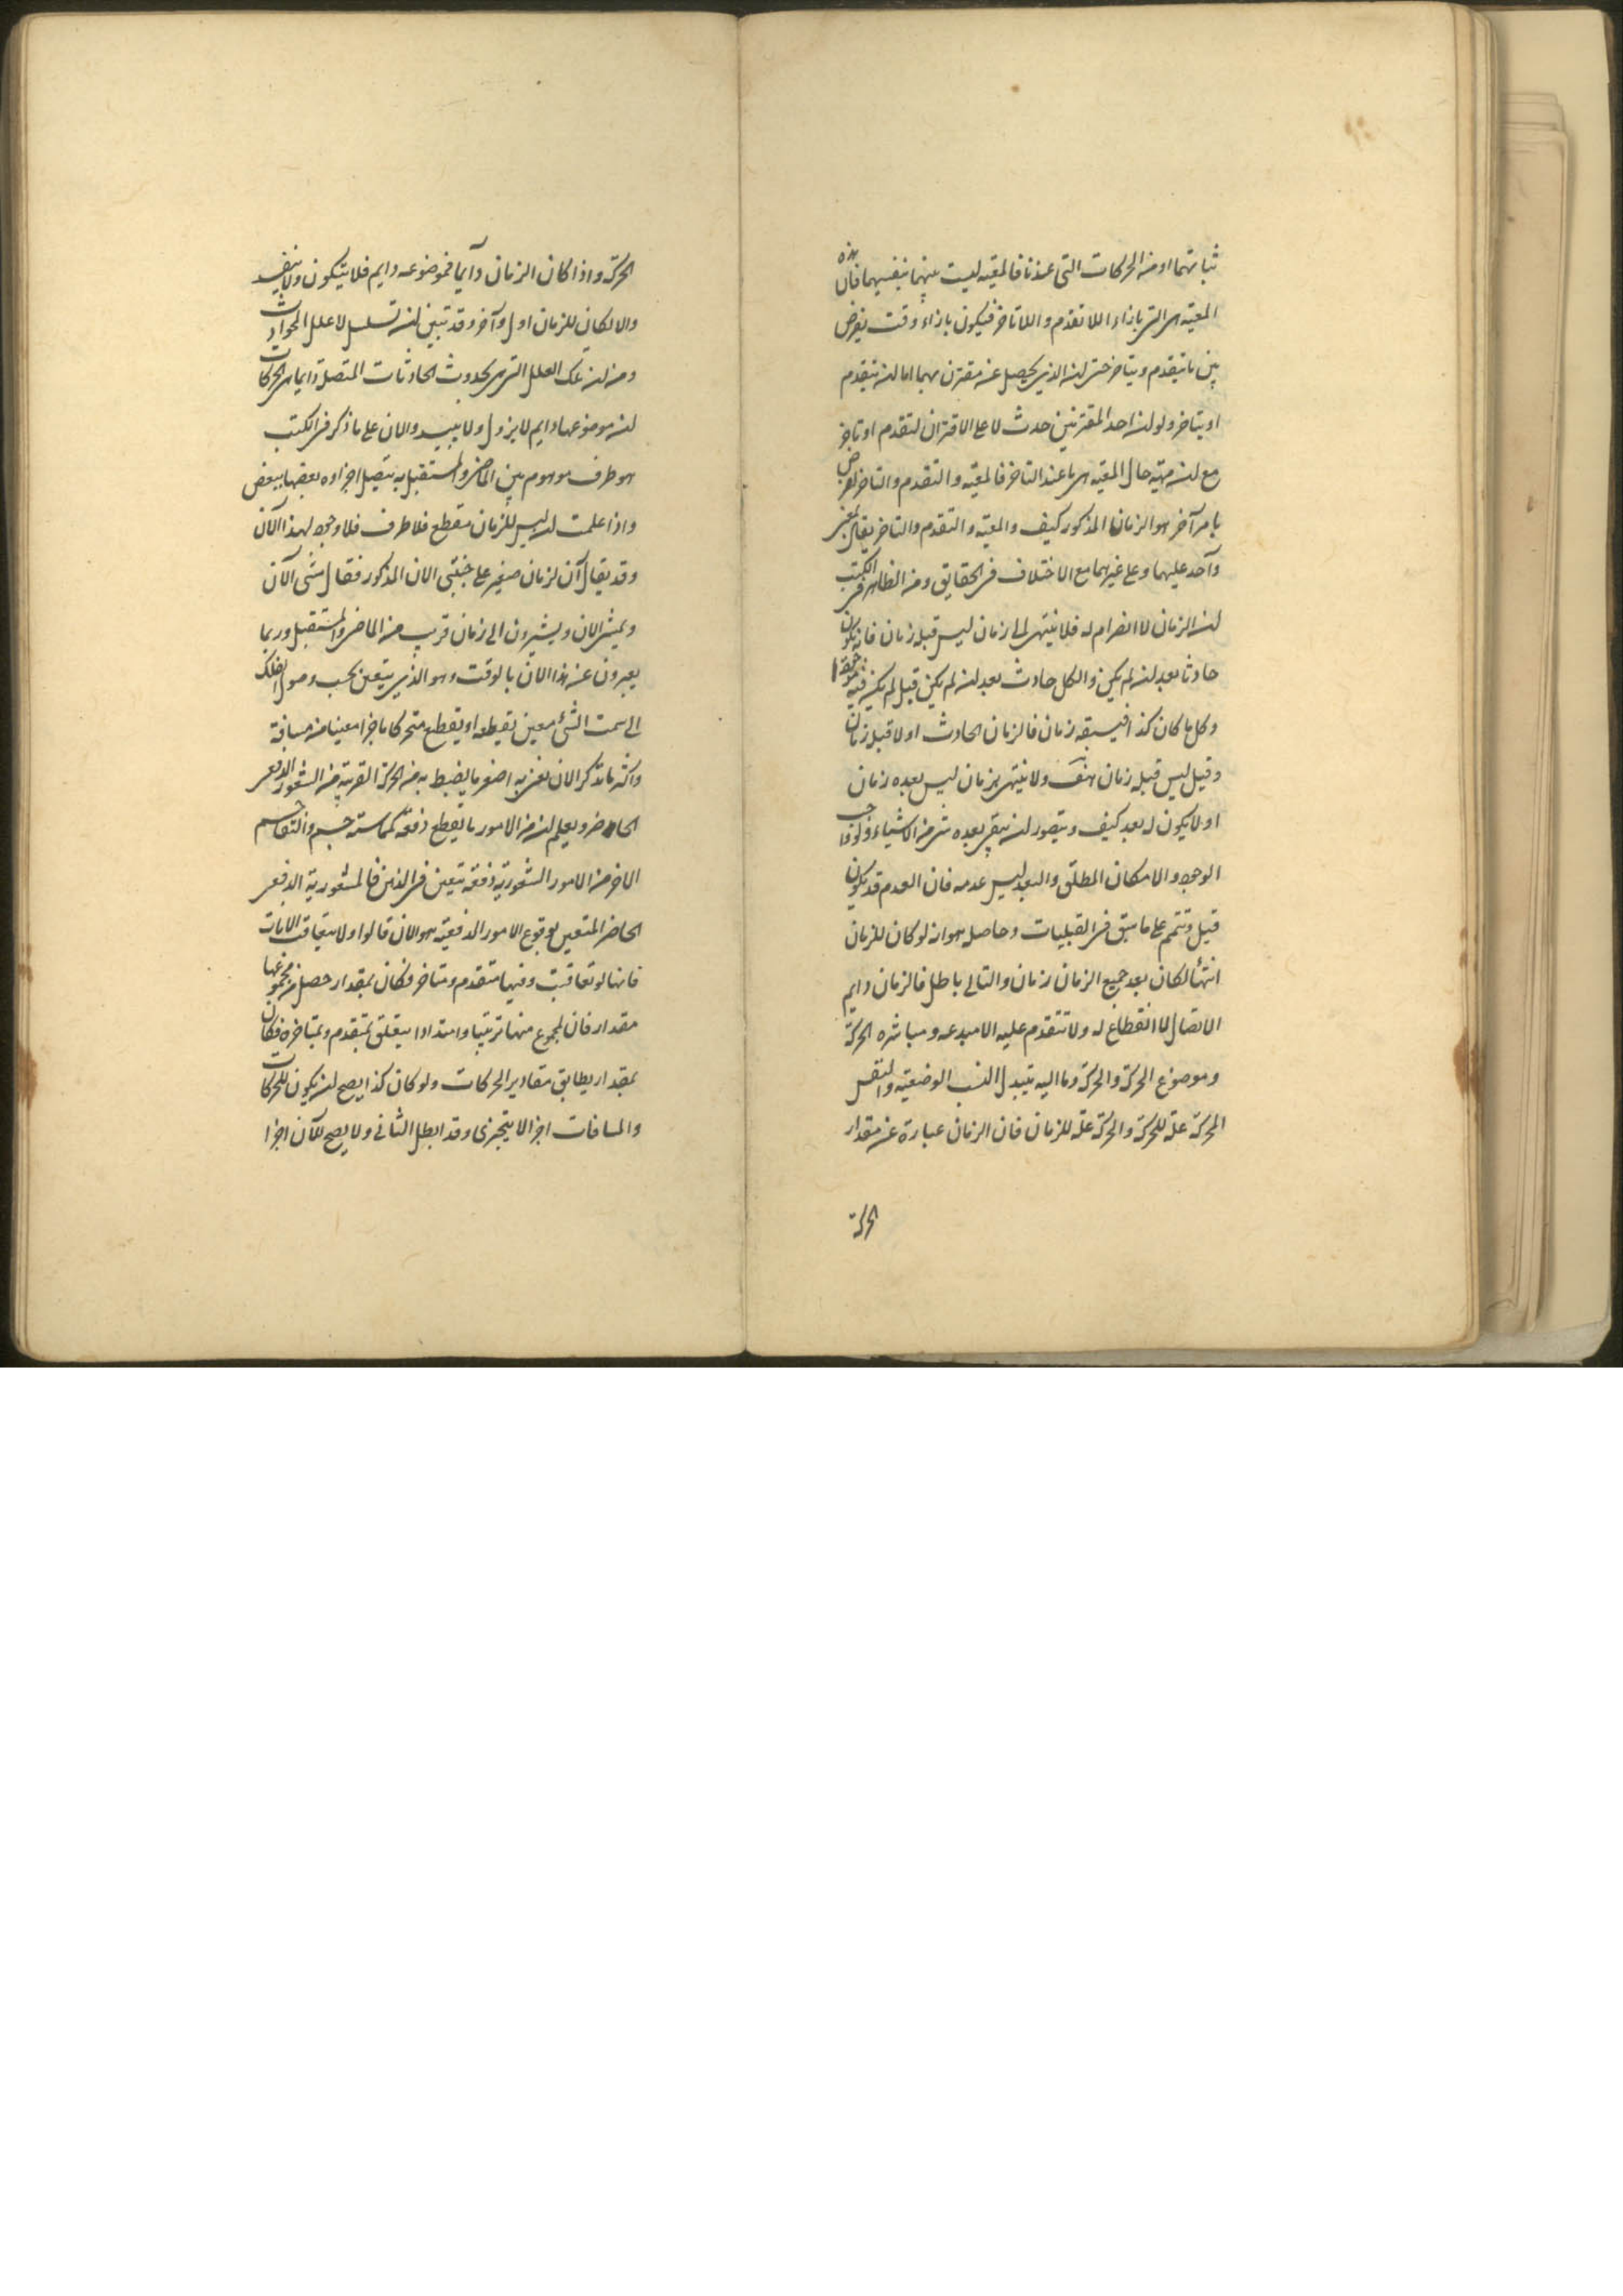 ثباتهما او من الحركات التى عندنا فالمعيه ليست بينهما بنفسيهما فان هذه
المعيه هى التى بازاء اللاتقدم واللاتاخر فيكون بازاء وقت يفرض
بين ما يتقدم ويتاخر حتى ان الذى يحصل عنه مقترن مهما اما ان يتقدم
او يتاخر ولو ان احد المقترنين حدث لا على الاقتران لتقدم او تاخر
مع ان مهية حال المعيه هى ما عند التاخر فالمعيه والتقدم والتاخر لعرض
بامر آخر هو الزمان المذكور كيف والمعيه والتقدم والتاخر يقال بمعنى
واحد عليهما وعلى غيرهما مع الاختلاف فى الحقايق ومن الظاهر فى الكتب
ان الزمان لا انصرام له فلا ينتهى الى زمان ليس قبله زمان فانه يكون
حادثا بعد ان لم يكن والكل حادث بعد ان لم يكن قبل لم يكن فيه
وكل ما كان كذا فيسبقه زمان فالزمان الحادث اولا قبله زمان
وقيل ليس قبله زمان هف ولا ينتهى بزمان ليس بعده زمان
او لا يكون له بعد كيف ويتصور ان يبقى بعده شى من الاشياء ولو واجب
الوجود والامكان المطلق والبعد ليس عدمه فان العدم قد يكون
قبل وتتمم على ما سبق فى القبليات وحاصله هو انه لو كان للزمان
انتهأ لكان بعد جميع الزمان زمان والتالى باطل فالزمان دايم
الاتصال لا انقطاع له ولا تتقدم عليه الا مبدعه ومباشره الحركة
وموضوع الحركة والحركة وما اليه يتبدل النسب الوضعيه والنفس
المحركة علة للحركة والحركة علة للزمان فان الزمان عبارة عن مقدار
الحركة
الحركة واذا كان الزمان دآيما فموضوعه دايم فلا يتكون ولا يفسد
والا لكان للزمان اول وآخر وقد تبين ان تسلسل لا علل الحوادث
ومن ان تلك العلل التى هى بحدوث الحادثات المتصل دايما هى الحركات
ان موضوعها دايم لا يزول ولا يبيد والان على ما ذكر فى الكتب
هو طرف موهوم بين الماضى والمستقبل به يتصل اجزاوه بعضها ببعض
واذا علمت ان ليس للزمان مقطع فلا طرف فلا وجود لهذا الآن
وقد يقال آن لزمان صغير على جنبتى الان المذكور فقال مشى الآن
ويمشى الان ويشيرون الى زمان قريب من الماضى والمستقبل وربما
يعبرون عن هذا الان بالوقت وهو الذى يتعين بحسب وصول الفلك
الى سمت الشئ معين يقطعه او يقطع متحركا ما جزا معينا من مسافة
واكثر ما تذكر الان نعنى به اصغر ما ينضبط به من الحركة القريبة من الشعور الدفعى
الحاضر ويعلم ان من الامور ما يقطع دفعة كمماسة جسم والتقاسم
الاخر من الامور الشعورية دفعه يتعين فى الذهن فالمشعورية الدفعى
الحاضر المتعين بوقوع الامور الدفعيه هو الان قالوا ولا يتعاقب الانات
فانها لو تعاقبت وفيها متقدم ومتاخر فكان بمقدار حصل من مجموعها
مقدار فان لمجموع منها ترتيبا وامتدادا يتعلق بمتقدم وبمتاخره فكان
بمقدار يطابق مقادير الحركات ولو كان كذا يصح ان يكون للحركات
والمسافات اجزا لا يتجزى وقد ابطل الثانى ولا يصح للآن اجزا